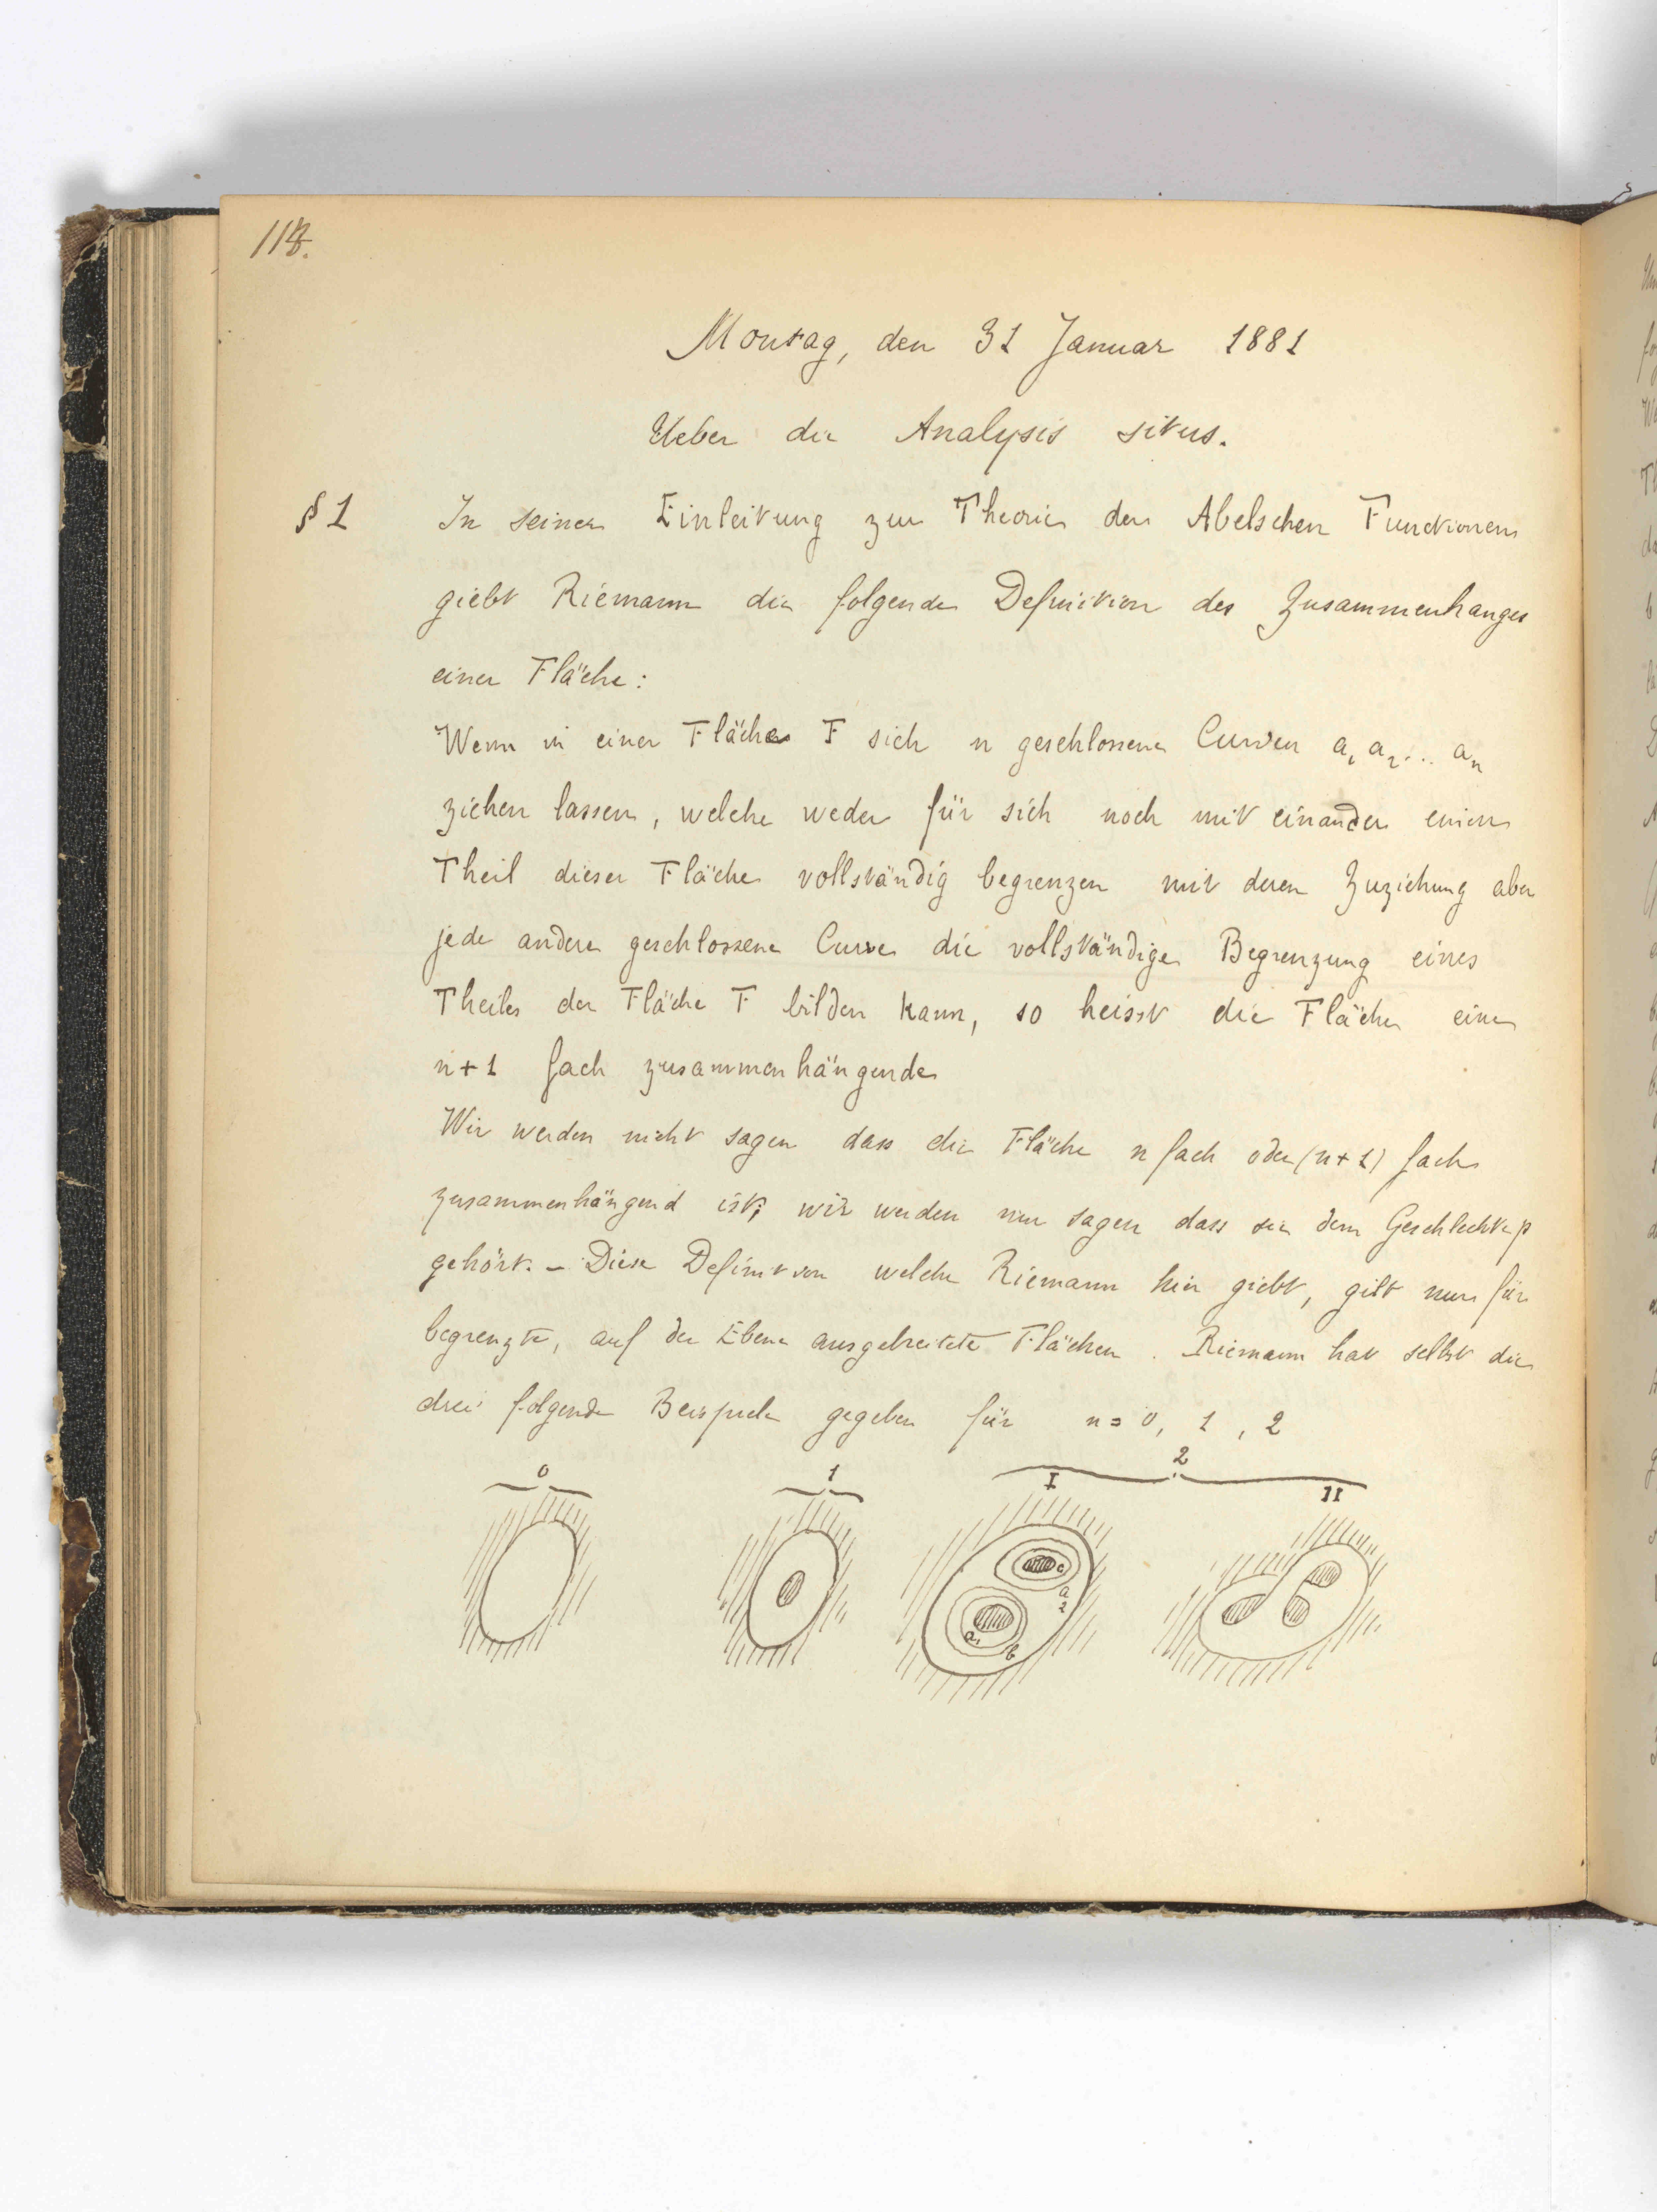 118.
Montag, den 31 Januar 1881
Ueber die Analysis situs.
§ 1 In seiner Einleitung zur Theorie der Abelschen Functionen
giebt Riemann die folgende Definition des Zusammenhanges
einer Fläche:
Wenn in einer Fläche F sich n geschlossene Curven a₁ a₂ ... aₙ
ziehen lassen, welche weder für sich noch mit einander einen
Theil dieser Fläche vollständig begrenzen mit deren Zuziehung aber
jede andere geschlossene Curve die vollständige Begrenzung eines
Theiles der Fläche F bilden kann, so heisst die Fläche eine
n+1 fach zusammenhängende
Wir werden nicht sagen dass die Fläche n fach oder (n+1) fach
zusammenhängend ist; wir werden nur sagen dass sie dem Geschlechte p
gehört. – Diese Definition welche Riemann hier giebt, gilt nur für
begrenzte, auf der Ebene ausgebreitete Flächen. Riemann hat selbst die
drei folgende Beispiele gegeben für n = 0, 1, 2
0 1 2
I II
a₂
a₁ b